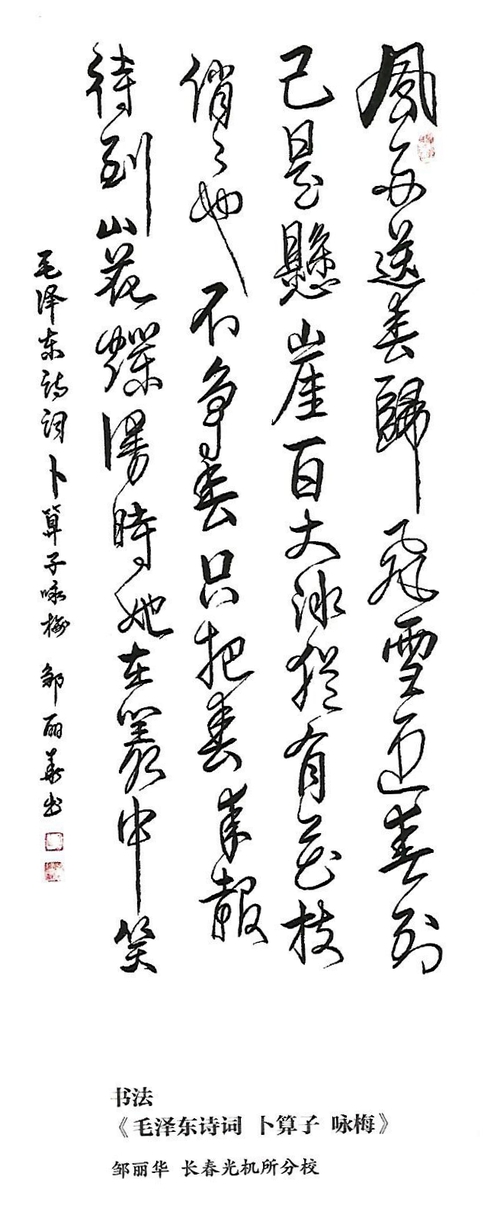 風雨送春歸飛雪迎春到
已是懸崖百丈冰猶有花枝
俏々也不争春只把春来報
待到山花爛漫時她在叢中笑
毛泽东诗词卜算子咏梅 邹丽华书
书法
《毛泽东诗词 卜算子 咏梅》
邹丽华 长春光机所分校